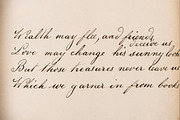 Wealth may flee, and friends
deceive us,
Love may change his sunny look
But those treasures never leave us
Which we garner in from books